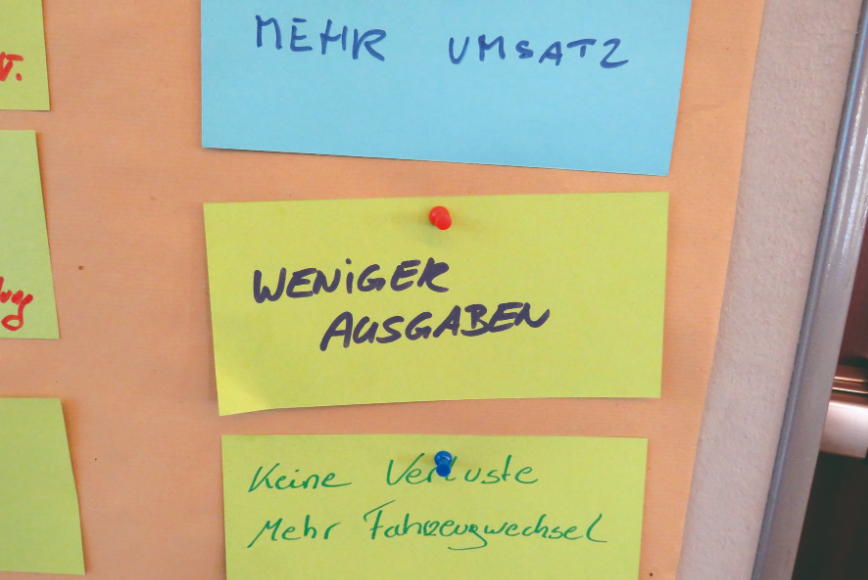 MEHR UMSATZ
WENIGER
AUSGABEN
Keine Verluste
Mehr Fahrzeugwechsel